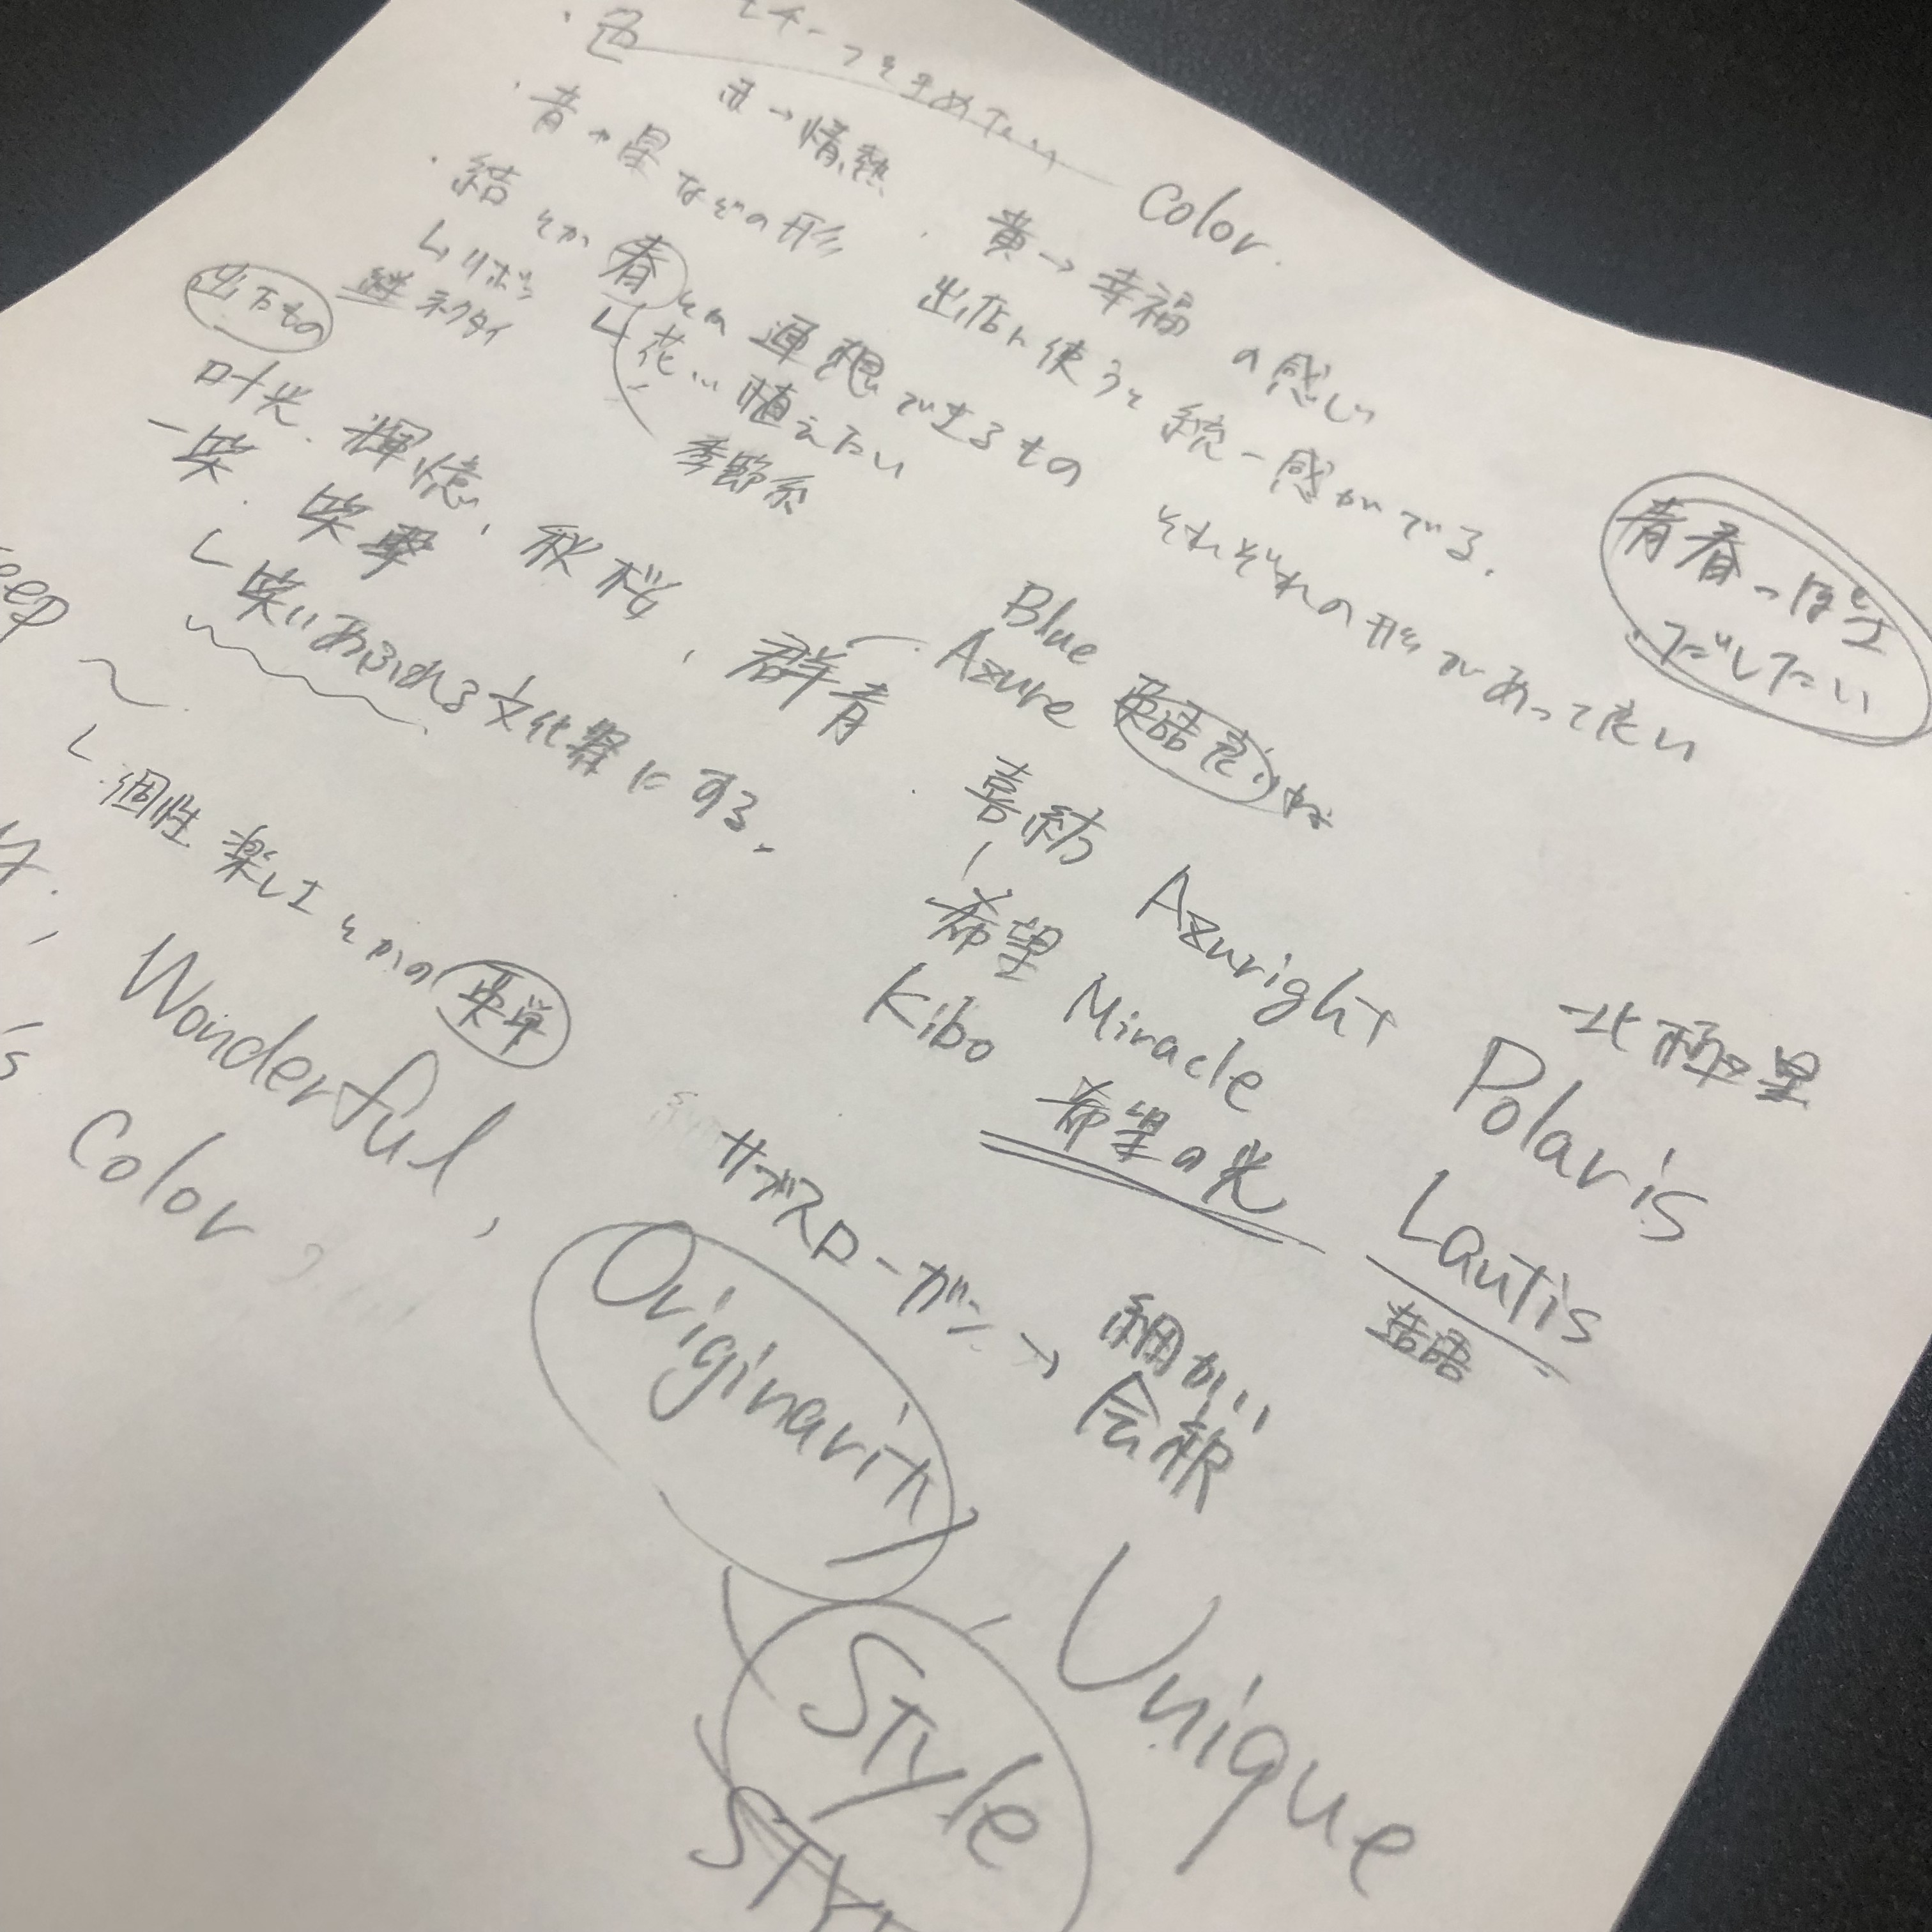 ・色 モチーフを定めたい color.
赤→情熱 ・黄→幸福 の感じ
・音や星などの形 出店に使うと統一感がでる.
・結とか 春とか連想できるもの それぞれの形があって良い
↳リボン ↳花…植えたい
ネクタイ 季節系
青春っぽさ
だしたい
出たもの
叶光. 輝憶, 秋桜, 群青 Blue
Azure 英語意
一笑. 笑
↳笑いあふれる文化祭にする.
喜紡 Azuright 北極星
希望 Miracle Polaris
Kibo 希望の光 Lautis
造語
eep ~
↳個性 楽しさとかの英単
Wonderful,
Color,
サブスローガン→細かい
会報
Originarity
Unique
Style